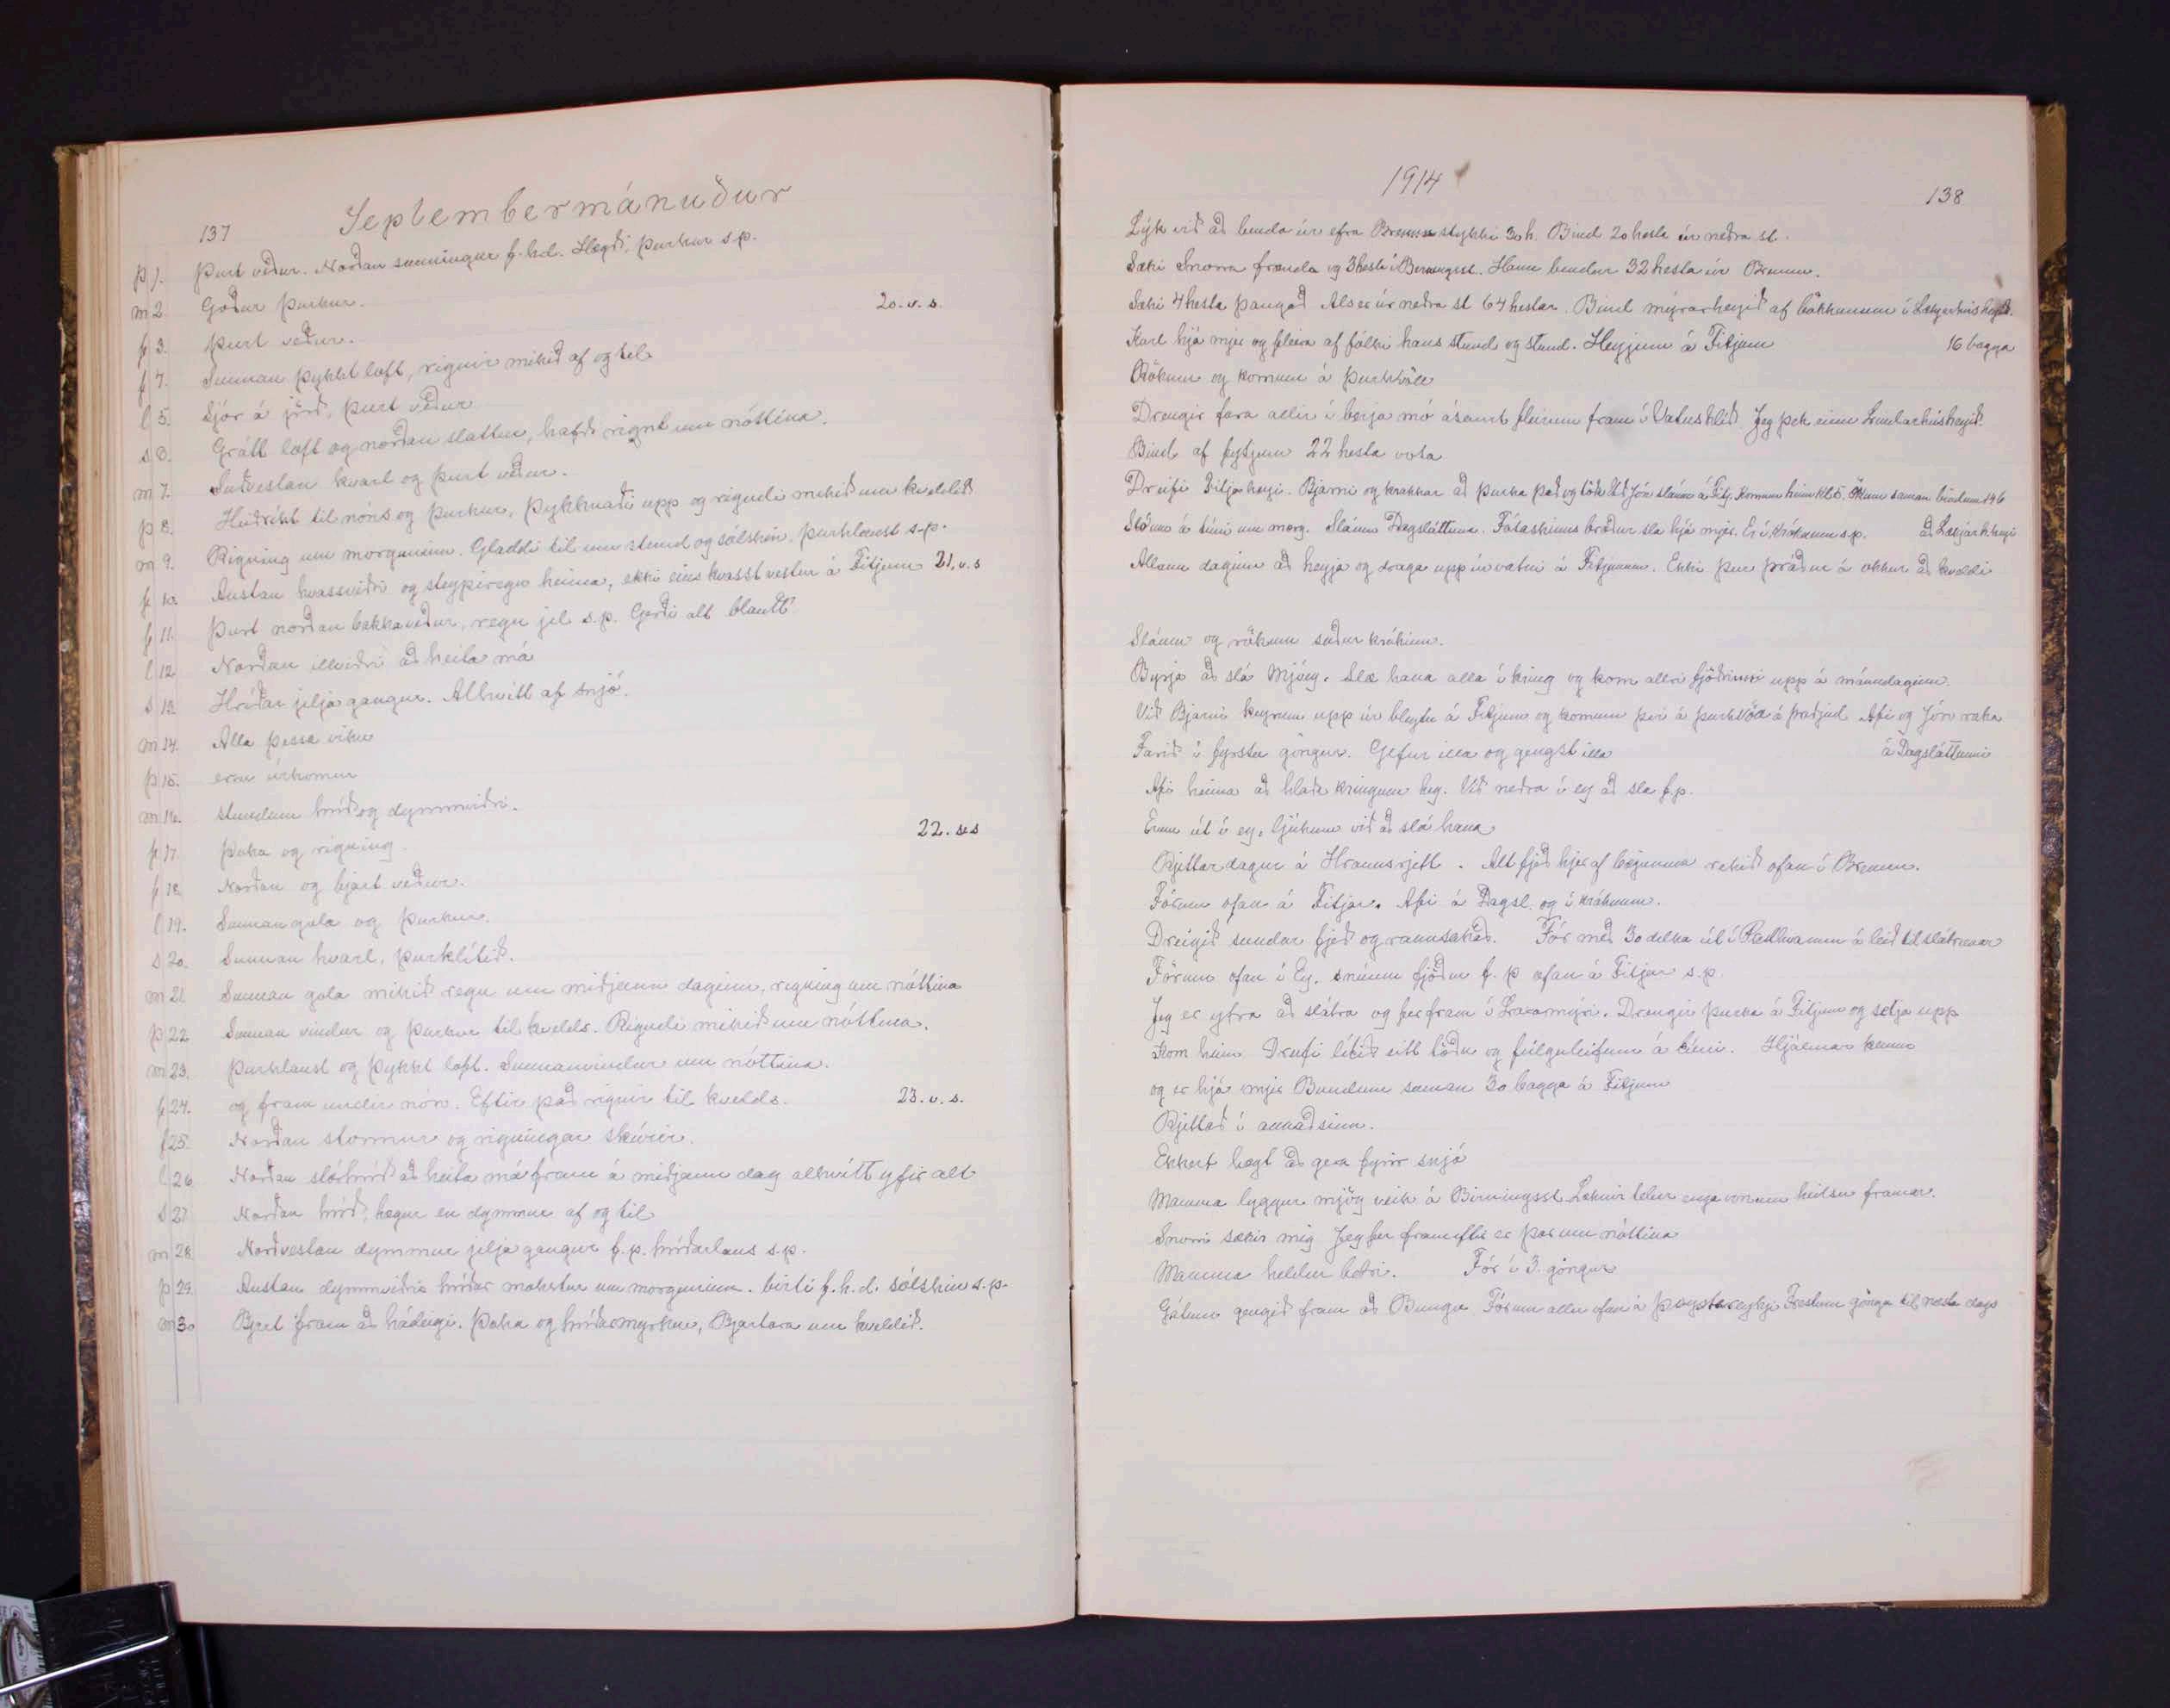 137
Septembermánuður
þ 1. Þurt veður. Norðan sunningur f. hd. Hægði, þurkur s.p.
m 2 Góður þurkur. 20. v. s.
f 3. Þurt veður.
f 4. Sunnan þykkt loft, rignir mikið af og til
l 5. Sjór á jörð, þurt veður
s 6. Grátt loft og norðan slattur, hafði rignt um nóttina.
m 7. Suðvestan kvast og þurt veður.
þ 8. Heiðríkt til nóns og þurkur, þykknaði upp og rigndi mikið um kveldið
m 9. Rigning um morguninn. Gladdi til um stund og sólskin. þurklaust s-p.
f 10. Austan hvassviðri og steypiregn heima, ekki eins hvasst vestur á Fitjum 21. v. s
f 11. Þurt norðan bakkaveður, regn jel s.p. Gerði alt blautt
l 12 Norðan illviðri að heita má
s 13. Hríðar jeljagangur. Alhvítt af snjó.
m 14. Alla þessa viku
þ 15. eru úrkomur
m 16. stundum hríð og dymmviðri.
f 17. Þoka og rigning. 22. s.s
f 18. Norðan og bjart veður.
l 19. Sunnan gola og þurkur.
s 20. Sunnan hvasl, þurklítið.
m 21. Sunnan gola mikið regn um miðjann daginn, rigning um nóttina
þ 22 Sunnan vindur og þurkur til kvelds. Rigndi mikið um nóttina.
m 23. Þurklaust og þykkt loft. Sunnanvindur um nóttina.
f 24. og fram undir nón. Eftir það rignir til kvelds. 23. v. s.
f 25. Norðan stormur og rigningar skúrir.
l 26 Norðan stórhríð að heita má fram á miðjann dag alhvítt yfir alt
s 27 Norðan hríð, hægur en dymmur af og til
m 28. Norðvestan dymmur jeljagangur f. p. hríðarlaus s.p.
þ 29. Austan dymmviðris hríðar mokstur um morguninn. birti f. h. d. sólskin s.p.
m 30 Bjart fram að hádeigi. Þoka og hríðarmyrkur, Bjartara um kveldið.
1914
138
Lýk við að benda úr efra Brennustykki 30 h. Bind 20 hesta úr neðra st.
Sæki Snorra frænda og 3 hesta í Birningsst. Hann bendur 32 hesta úr Brennu.
Sæki 4 hesta þangað Als er úr neðra st 64 hestar. Bind mýrarheyið af bökkunum í
Karl hjá mjer og fleira af fólki hans stund og stund. Heyjum á Fitjum 16 bagga
Rökum og komum á þurkvöll
Drengir fara allir í berja mó ásamt fleirum fram í Vatnshlíð Jeg þek einn Lundarhúsheyið.
Bind af fytjum 22 hesta vota
Dreifi Fitjaheyi. Bjarni og krakkar að þurka það og Við Jón sláum á Fitj. Komum heim kl 5. Ökum saman bindum 146
Slóum á túni um morg. Sláum Dagsláttuna. bróður sla hjá mjer. Er í króknum s.p. að Lækjark.heyi
Allann daginn að heyja og draga upp úr vatni á Fitjunum. Ekki þur þráður á okkur að kveldi
Sláum og rökum suður krókinn.
Byrja að slá Mjóey. Slæ hana alla í kring og kom allri fjöðrinni upp á mánudaginn.
Við Bjarni keyrum upp úr bleytu á Fitjum og komum því á þurkvöll á þriðjud. Afi og Jón raka
Farið í fyrstu göngur. Gefur illa og gengst illa á Dagsláttunni
Afi heima að hlaða kringum hey. Við neðra í ey að sla f.p.
Erum út í ey. ljúkum við að slá hana
Rjettardagur á Hraunsrjett. Alt fjeð hjer af bæjunum rekið ofan í Brennu.
Fórum ofan á Fitjar. Afi á Dagsl. og í króknum.
Dreigið sundur fjeð og rannsakað. Fór með 30 dilka út í Presthvamm á leið til slátrunar
Förum ofan í Ey. snúum fjöðrum f. p ofan á Fitjar s.p.
Jeg er ytra að slátra og fer fram í Laxamýri. Drengir þurka á Fitjum og setja upp
Kom heim. Dreifi lítið eitt töðu og fúlguleifum á túni. Hjálmar kemur
og er hjá mjer Bundum saman 30 bagga á Fitjum
Rjettað í annað sinn.
Ekkert hægt að gera fyrir snjó
Mamma lyggur mjög veik á Birningsst. Læknir telur enga von um heilsu framar.
Snorri sækir mig Jeg fer frameftir er þar um nóttina
Mamma heldur betri. Fór í 3. göngur
Gátum gengið fram að Bunga Fórum allir ofan á Þeystareyki Frestum göngu til næsta dags